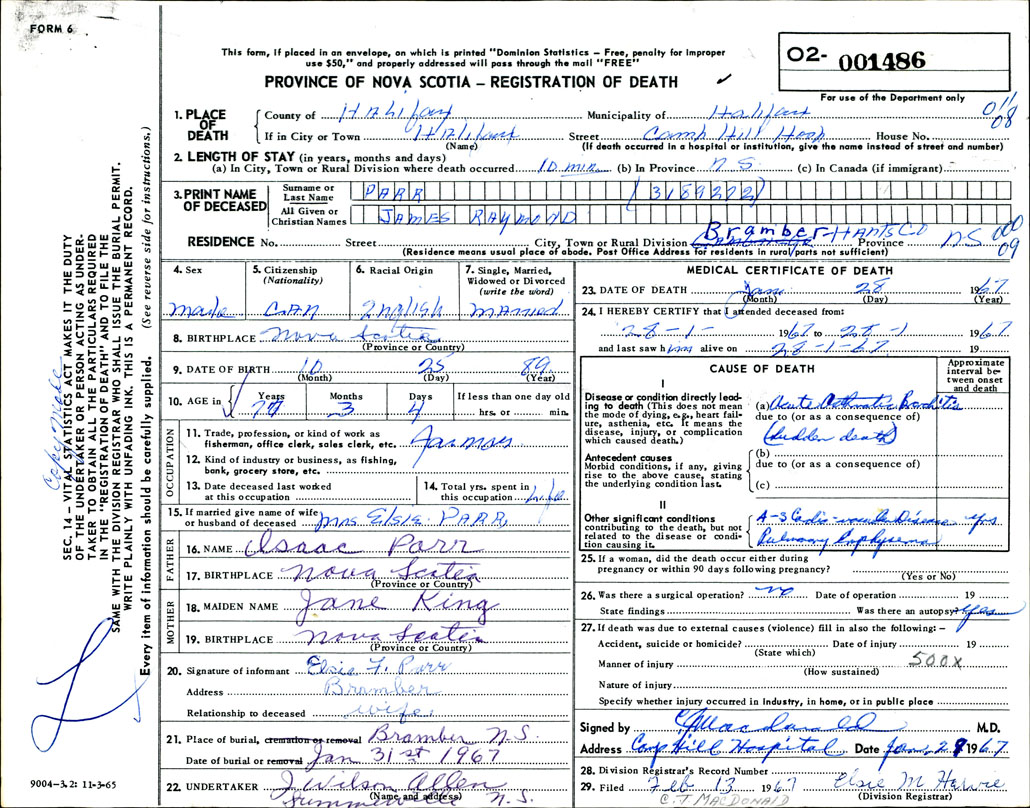 FORM 6
This form, if placed in an envelope, on which is printed "Dominion Statistics – Free, penalty for improper
use $50," and properly addressed will pass through the mail "FREE"
PROVINCE OF NOVA SCOTIA – REGISTRATION OF DEATH
02- 001486
For use of the Department only
1. PLACE OF DEATH County of Halifax Municipality of Halifax 011 08
If in City or Town Halifax Street Camp Hill Hosp House No.
(Name) (If death occurred in a hospital or institution, give the name instead of street and number)
2. LENGTH OF STAY (in years, months and days)
(a) In City, Town or Rural Division where death occurred 10 min (b) In Province N S. (c) In Canada (if immigrant)
3. PRINT NAME OF DECEASED Surname or Last Name PARR (3189272)
All Given or Christian Names JAMES RAYMOND
RESIDENCE No. Street City, Town or Rural Division Bramber HANTS CO Province NS 000 09
(Residence means usual place of abode. Post Office Address for residents in rural parts not sufficient)
4. Sex male
5. Citizenship (Nationality) CAN
6. Racial Origin English
7. Single, Married, Widowed or Divorced (write the word) MARRIED
8. BIRTHPLACE Nova Scotia
(Province or Country)
9. DATE OF BIRTH 10 25 89
(Month) (Day) (Year)
10. AGE in Years 77 Months 3 Days 4 If less than one day old hrs. or min.
OCCUPATION
11. Trade, profession, or kind of work as
fisherman, office clerk, sales clerk, etc. Farmer
12. Kind of industry or business, as fishing,
bank, grocery store, etc.
13. Date deceased last worked
at this occupation
14. Total yrs. spent in
this occupation life
15. If married give name of wife
or husband of deceased Mrs ELSIE PARR
FATHER
16. NAME Isaac Parr
17. BIRTHPLACE Nova Scotia
(Province or Country)
MOTHER
18. MAIDEN NAME Jane King
19. BIRTHPLACE Nova Scotia
(Province or Country)
20. Signature of informant Elsie F. Parr
Address Bramber
Relationship to deceased wife
21. Place of burial, cremation or removal Bramber N.S.
Date of burial or removal Jan 31st 1967
22. UNDERTAKER J Wilson Allen
(Name and address) N.S.
MEDICAL CERTIFICATE OF DEATH
23. DATE OF DEATH Jan 28 1967
(Month) (Day) (Year)
24. I HEREBY CERTIFY that I attended deceased from:
28-1- 1967 to 28-1 1967
and last saw him alive on 28-1-67 19
CAUSE OF DEATH
Approximate interval between onset and death
I
Disease or condition directly leading to death (This does not mean the mode of dying, e.g., heart failure, asthenia, etc. It means the disease, injury, or complication which caused death.)
(a) Acute Asthmatic Bronchitis
due to (or as a consequence of)
(sudden death)
Antecedent causes
Morbid conditions, if any, giving rise to the above cause, stating the underlying condition last.
(b)
due to (or as a consequence of)
(c)
II
Other significant conditions
contributing to the death, but not related to the disease or condition causing it.
A-S Cardio-vascular Disease yrs
Pulmonary Emphysema
25. If a woman, did the death occur either during
pregnancy or within 90 days following pregnancy?
(Yes or No)
26. Was there a surgical operation? no Date of operation 19
State findings Was there an autopsy? Yes
27. If death was due to external causes (violence) fill in also the following: –
Accident, suicide or homicide? Date of injury 19
(State which)
Manner of injury 500x
(How sustained)
Nature of injury
Specify whether injury occurred in industry, in home, or in public place
Signed by CJ Macdonald M.D.
Address Camp Hill Hospital Date Jan. 29 1967
28. Division Registrar's Record Number
29. Filed Feb 13 1967 Elsie M
C. J. MACDONALD (Division Registrar)
SEC. 14 – VITAL STATISTICS ACT MAKES IT THE DUTY
OF THE UNDERTAKER OR PERSON ACTING AS UNDER-
TAKER TO OBTAIN ALL THE PARTICULARS REQUIRED
IN THE "REGISTRATION OF DEATH" AND TO FILE THE
SAME WITH THE DIVISION REGISTRAR WHO SHALL ISSUE THE BURIAL PERMIT.
WRITE PLAINLY WITH UNFADING INK. THIS IS A PERMANENT RECORD.
Every item of information should be carefully supplied. (See reverse side for instructions.)
9004–3.2: 11-3-65